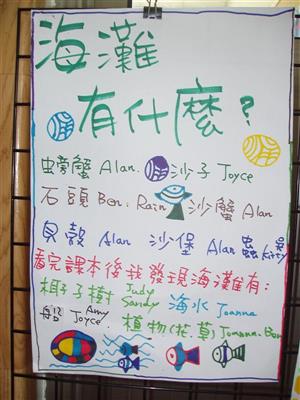 海灘
有什麼?
虫旁蟹 Alan. 沙子 Joyce
石頭 Ben. Rain 沙蟹 Alan
貝殼 Alan 沙堡 Alan 蟲 Kitty
看完課本後我發現海灘有:
椰子樹 Judy Sandy 海水 Joanna
船 Amy Joyce 植物(花.草) Joanna. Ben